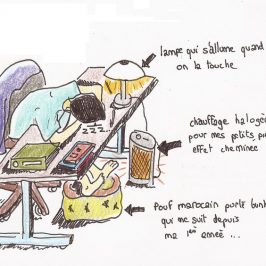 lampe qui s'allume quand
on la touche
zzzz
chauffage halogè
pour mes petits
effet cheminée
Pouf marocain
qui me suit depuis
ma 1ère année ...